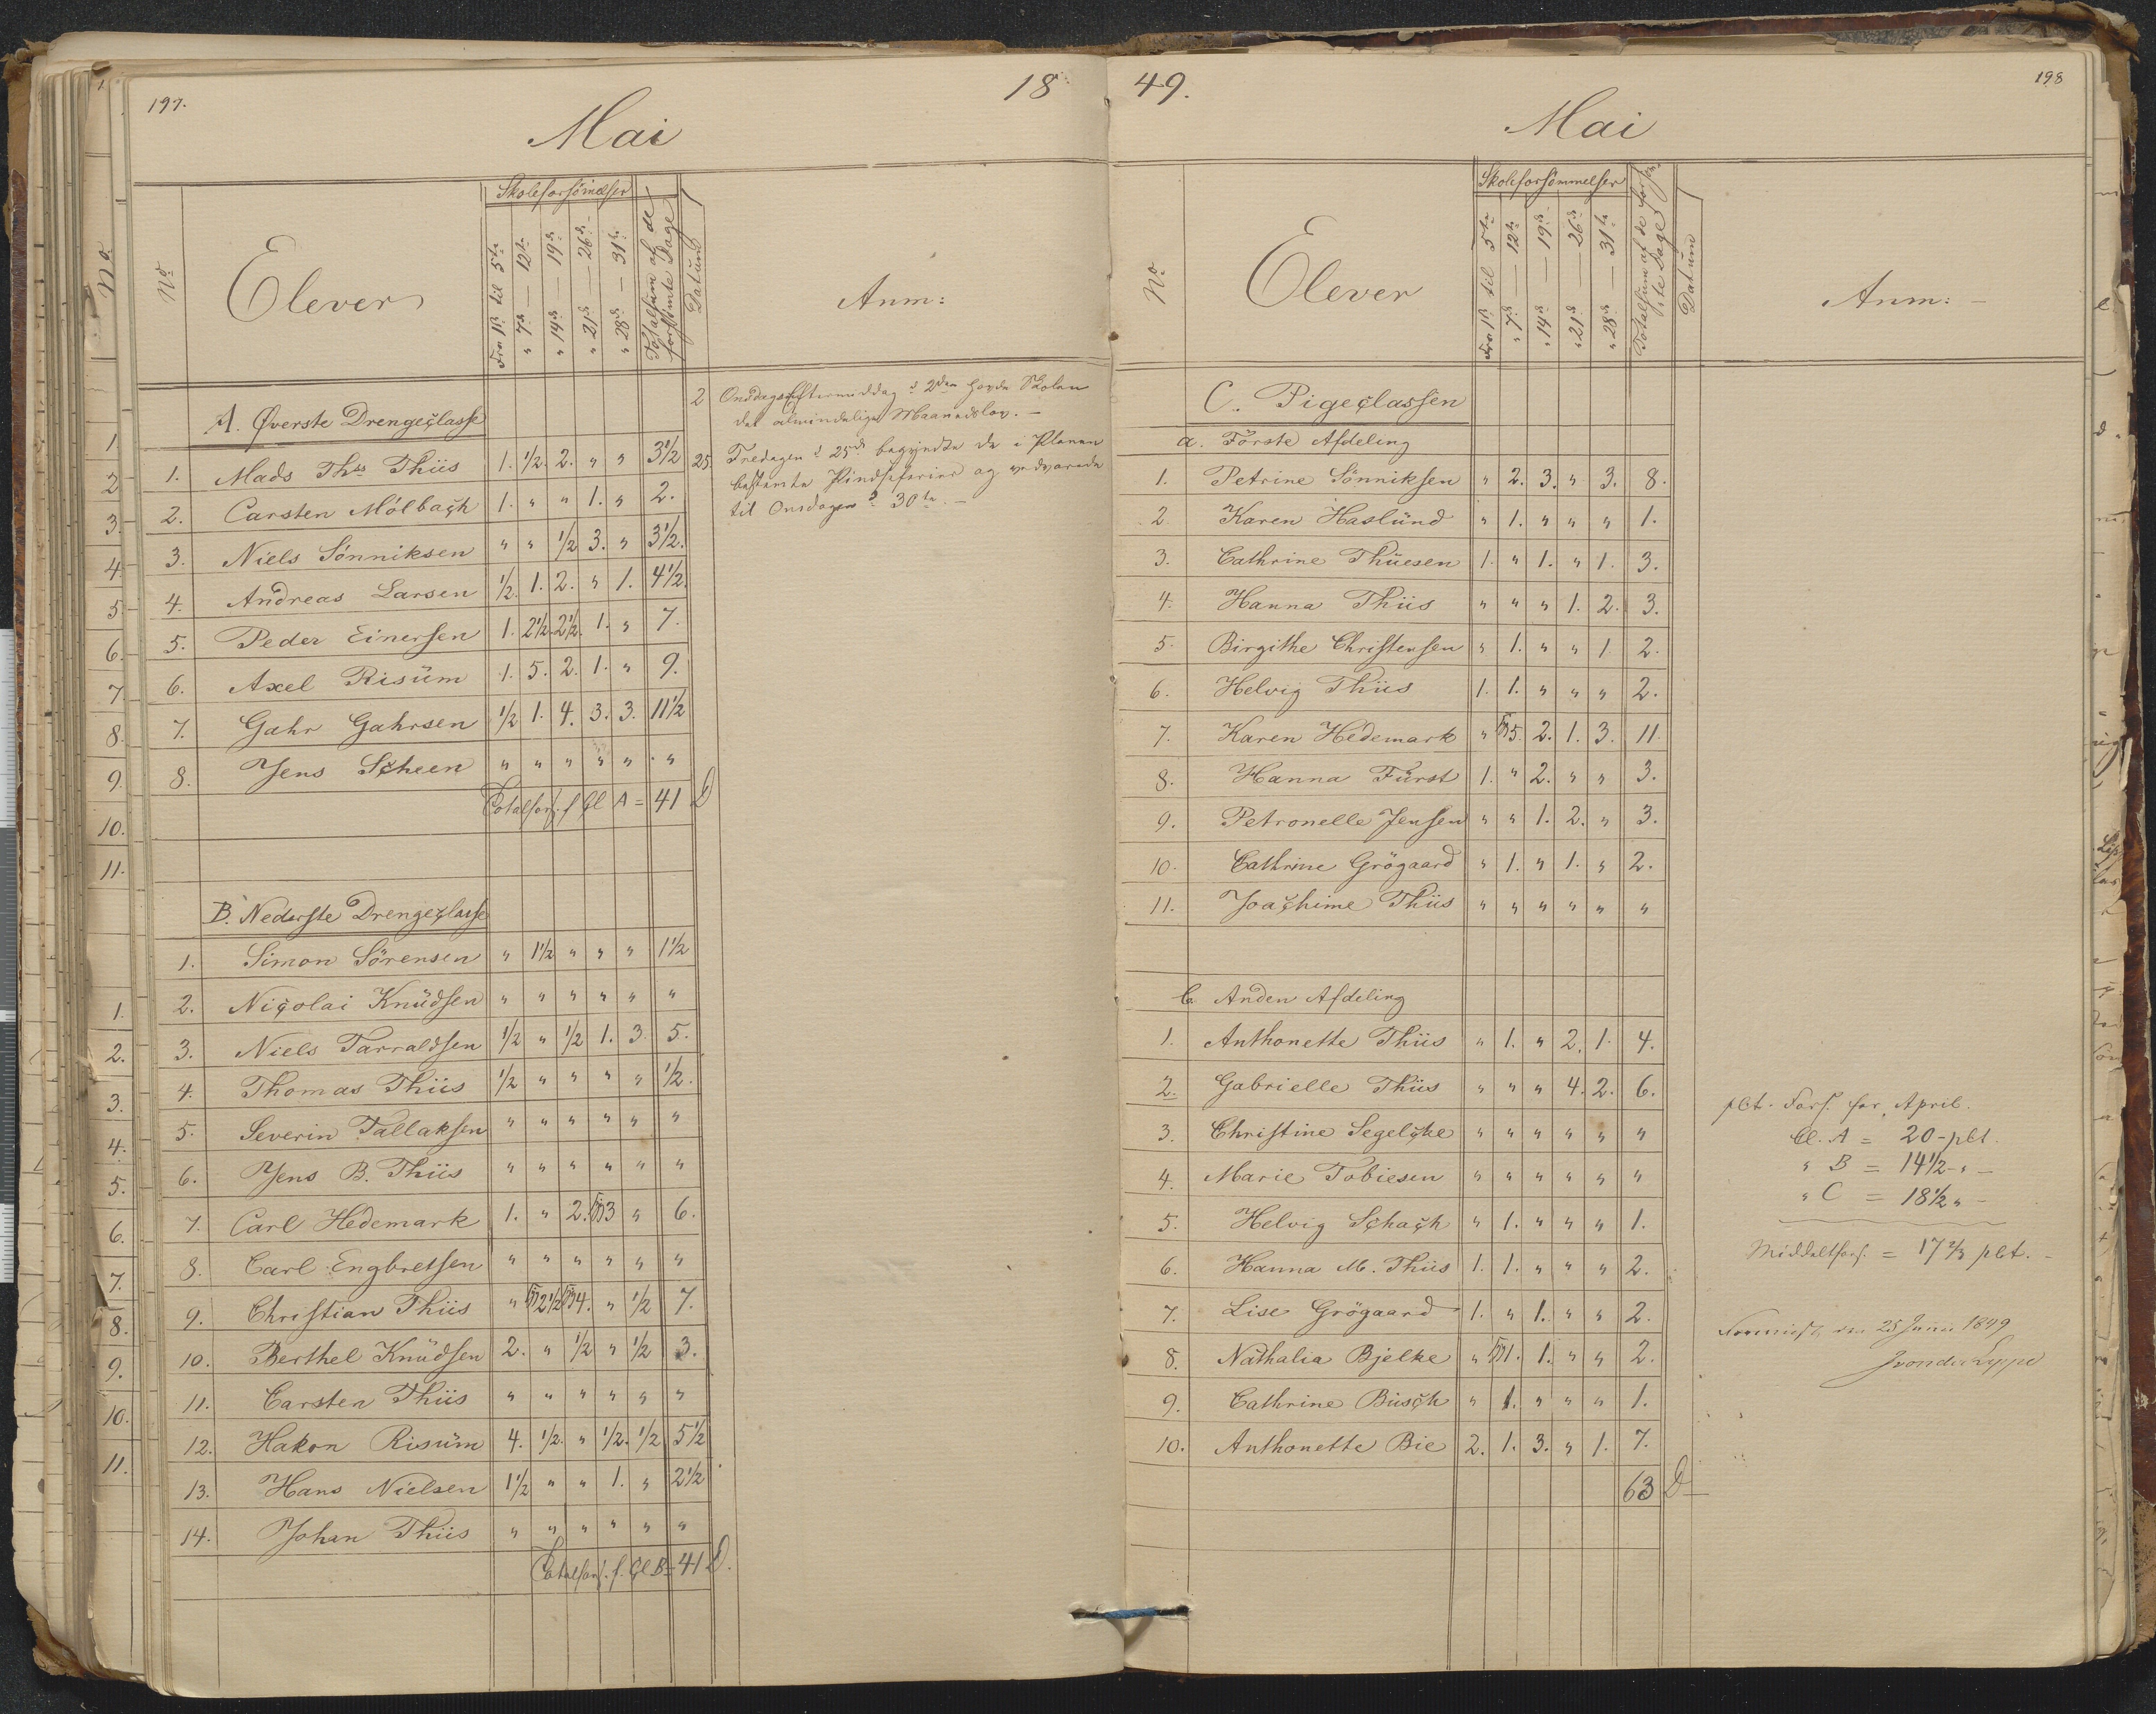 197.
18
Mai
No
Elever
Skoleforsömelser
Fra 1ste til 5te
" 7de — 12te
" 14de — 19de
" 21de — 26de
" 28de — 31te
Totalsum af de forsömte Dage
Datum
Anm:
A. Øverste Drengeclasse
1. Mads Ths Thiis 1. 1/2. 2. " " 3 1/2
2. Carsten Mölbach 1. " " 1. " 2.
3. Niels Sönniksen " " 1/2 3. " 3 1/2.
4. Andreas Larsen 1/2. 1. 2. " 1. 4 1/2.
5. Peder Einersen 1. 2 1/2. 2 1/2. 1. " 7.
6. Axel Risüm 1. 5. 2. 1. " 9.
7. Gahr Gahrsen 1/2 1. 4. 3. 3. 11 1/2
8. Jens Scheen " " " " " "
Totalfors. f Cl A = 41 D
2 Onsdagseftermiddag d 2den havde Skolen
det almindelige Maanedslov. —
25 Fredagen d 25de begyndte de i Planen
bestemte Pindseferier og vedvarede
til Onsdagen d 30te. —
B. Nederste Drengeclasse
1. Simon Sörensen " 1 1/2 " " " 1 1/2
2. Nicolai Knüdsen " " " " " "
3. Niels Tarraldsen 1/2 " 1/2 1. 3. 5.
4. Thomas Thiis 1/2 " " " " 1/2.
5. Severin Tallaksen " " " " " "
6. Jens B. Thiis " " " " " "
7. Carl Hedemark 1. " 2. 3 " 6.
8. Carl Engbretsen " " " " " "
9. Christian Thiis " 2 1/2 4. " 1/2 7.
10. Berthel Knüdsen 2. " 1/2 " 1/2 3.
11. Carsten Thiis " " " " " "
12. Hakon Risüm 4. 1/2. " 1/2. 1/2 5 1/2
13. Hans Nielsen 1 1/2 " " 1. " 2 1/2
14. Johan Thiis " " " " " "
Totalfors. f. Cl B = 41 D.
49.
198
Mai
No
Elever
Skoleforsömmelser
Fra 1ste til 5te
" 7de — 12te
" 14de — 19de
" 21de — 26de
" 28de — 31te
Totalsum af de forsömte Dage
Datum
Anm: —
C. Pigeclassen
a. Förste Afdeling
1. Petrine Sönniksen " 2. 3. " 3. 8.
2. Karen Haslünd " 1. " " " 1.
3. Cathrine Thüesen 1. " 1. " 1. 3.
4. Hanna Thiis " " " 1. 2. 3.
5. Birgithe Christensen " 1. " " 1. 2.
6. Helvig Thiis 1. 1. " " " 2.
7. Karen Hedemark " 5. 2. 1. 3. 11.
8. Hanna Fürst 1. " 2. " " 3.
9. Petronelle Jensen " " 1. 2. " 3.
10. Cathrine Grögaard " 1. " 1. " 2.
11. Joachime Thiis " " " " " "
b. Anden Afdeling
1. Anthonette Thiis " 1. " 2. 1. 4.
2. Gabrielle Thiis " " " 4. 2. 6.
3. Christine Segelcke " " " " " "
4. Marie Tobiesen " " " " " "
5. Helvig Schach " 1. " " " 1.
6. Hanna M. Thiis 1. 1. " " " 2.
7. Lise Grögaard 1. " 1. " " 2.
8. Nathalia Bjelke " 1. 1. " " 2.
9. Cathrine Büsch " 1. " " " 1.
10. Anthonette Bie 2. 1. 3. " 1. 7.
63 D
pCt. Fors. for April.
Cl. A = 20 - pCt.
" B = 14 1/2 - " —
" C = 18 1/2 " —
Middeltfors. = 17 2/3 pCt. —
25 Juni 1849
JvonderLippe